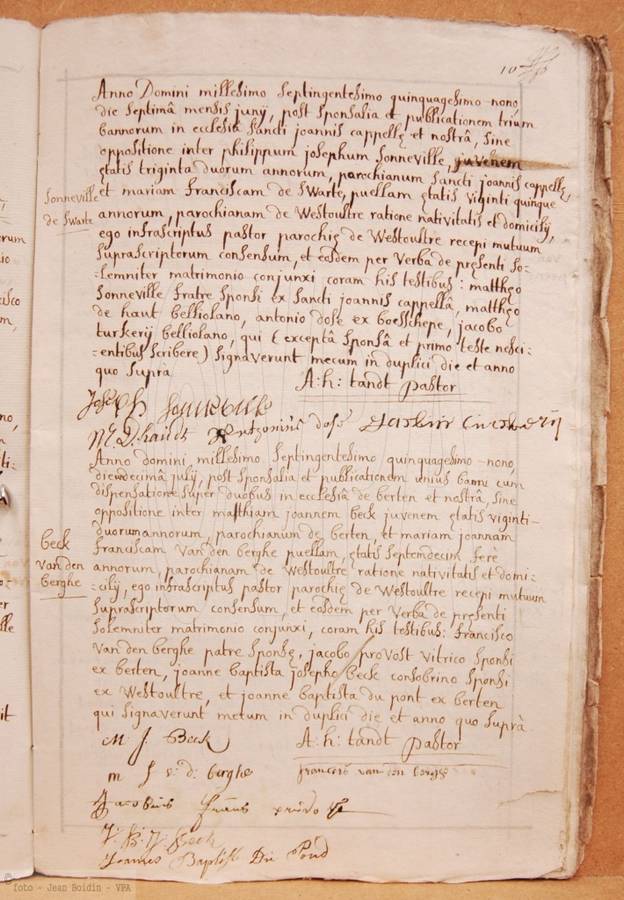 10
Anno Domini millesimo septingentesimo quinquagesimo nono,
die septimâ mensis junij, post sponsalia et publicationem trium
bannorum in ecclesiâ sancti joannis cappellę et nostrâ, sine
oppositione inter philippum josephum Sonneville, juvenem
ętatis triginta duorum annorum, parochianum sancti joannis cappellę,
Sonneville
de Swarte
et mariam franciscam de Swarte, puellam ętatis viginti quinque
annorum, parochianam de Westoultre ratione nativitatis et domicilij,
ego infrascriptus pastor parochię de Westoultre recepi mutuum
suprascriptorum consensum, et eosdem per verba de pręsenti so-
-lemniter matrimonio conjunxi coram his testibus: matthęo
Sonneville fratre sponsi ex sancti joannis cappellâ, matthęo
de haut belliolano, antonio dose ex boesschepe, jacobo
turkerij belliolano, qui (exceptâ sponsâ et primo teste nesci-
-entibus scribere) signaverunt mecum in duplici die et anno
quo supra
A: h: tandt pastor
Joseph
dose
Anno domini millesimo septingentesimo quinquagesimo nono,
die decimâ julij, post sponsalia et publicationem unius banni cum
dispensatione super duobus in ecclesiâ de berten et nostrâ, sine
oppositione inter matthiam joannem beck juvenem ętatis viginti-
duorum annorum, parochianum de berten, et mariam joannam
beck
van den
berghe
franciscam van den berghe puellam, ętatis septendecim ferè
annorum, parochianam de Westoultre ratione nativitatis et domi-
-cilij, ego infrascriptus pastor parochię de Westoultre recepi mutuum
suprascriptorum consensum, et eosdem per verba de pręsenti
solemniter matrimonio conjunxi, coram his testibus: francisco
van den berghe patre sponsę, jacobo provost vitrico sponsi
ex berten, joanne baptista josepho beck consobrino sponsi
ex Westoultre, et joanne baptista du pont ex berten
qui signaverunt mecum in duplici die et anno quo suprà
M J. Beck
A: h: tandt pastor
m j v: d: berghe
francois van den berghe
Jacobus
J: B: J: beck
Joannes Baptiste Du Pond
© foto - Jean Boidin - VPA